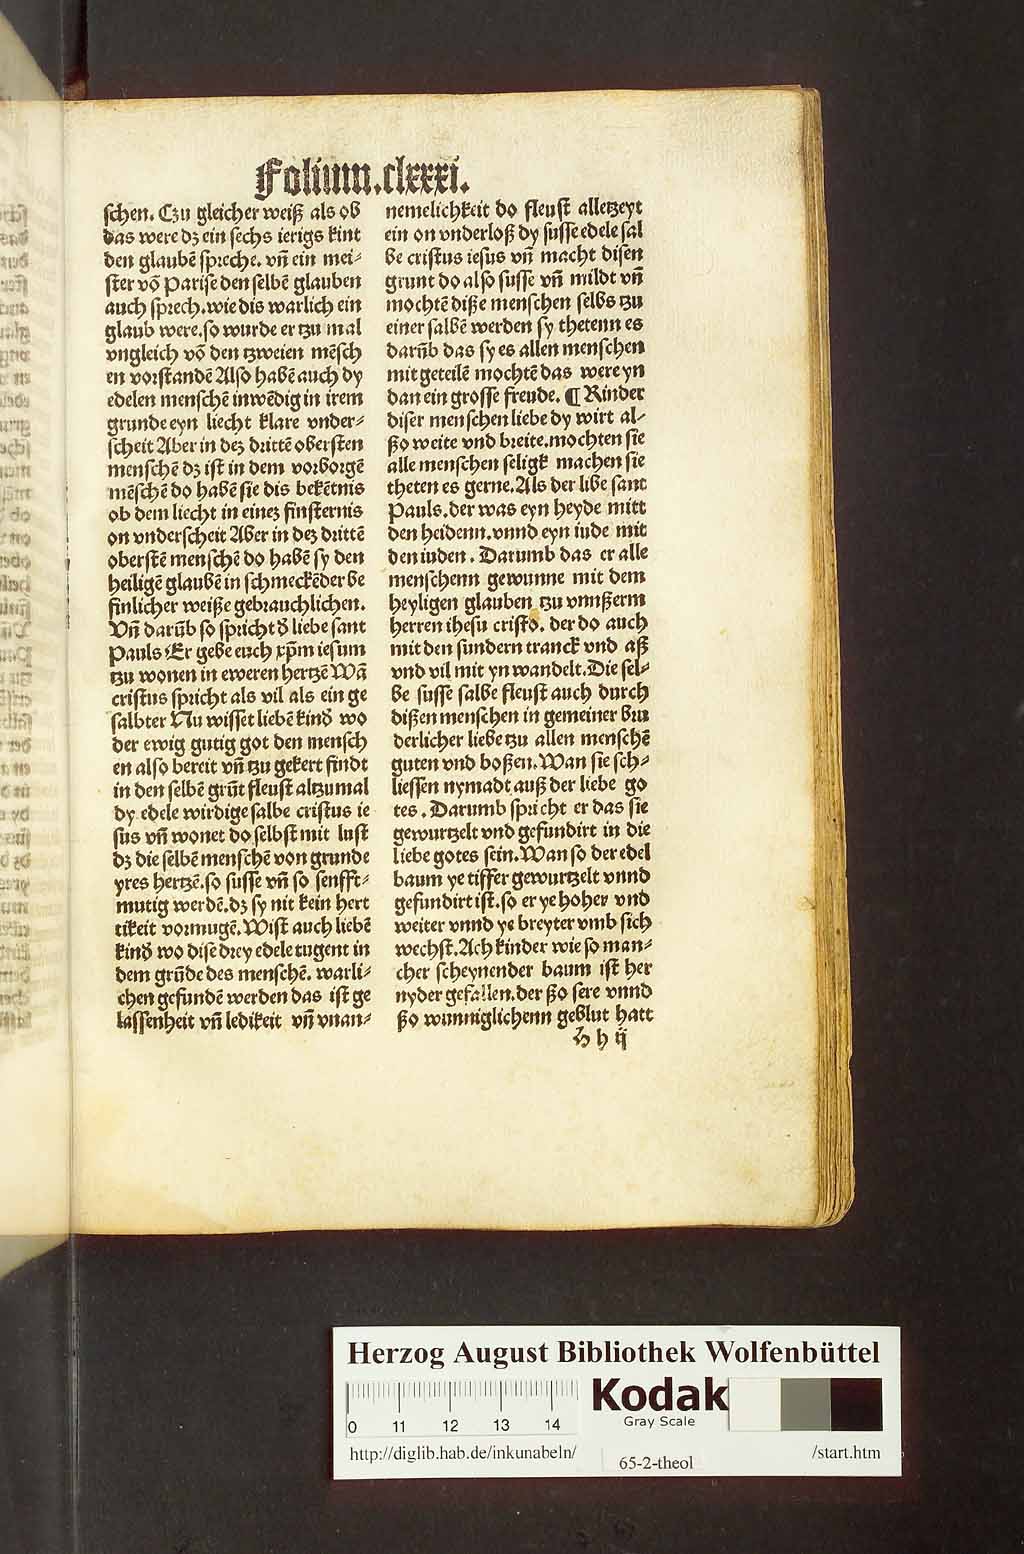 Folium.clxxxi.
schen. Czu gleicher weiß als ob
das were dʒ ein sechs ierigs kint
den glaubē spreche. vñ ein mei⸗
ster võ Parise den selbē glauben
auch sprech. wie dis warlich ein
glaub were. so wurde er tzu mal
vngleich võ den tzweien mēsch
en vorstandē Also habē auch dy
edelen menschē inwēdig in irem
grunde eyn liecht klare vnder⸗
scheit Aber in deʒ drittē obersten
menschē dʒ ist in dem vorborgē
mēschē do habē sie dis bekētnis
ob dem liecht in eineʒ finsternis
on vnderscheit Aber in deʒ drittē
oberstē menschē do habē sy den
heiligē glaubē in schmeckēder be
finlicher weiße gebrauchlichen.
Vñ darūb so spricht d̕ liebe sant
Pauls Er gebe euch xp̄m iesum
tzu wonen in eweren hertzē Wā
cristus spricht als vil als ein ge
salbter Nu wisset liebē kind̕ wo
der ewig gutig got den mensch
en also bereit vñ tzu gekert findt
in den selbē grūt fleust altzumal
dy edele wirdige salbe cristus ie
sus vñ wonet do selbst mit lust
dʒ die selbē menschē von grunde
yres hertzē. so susse vñ so senfft⸗
mutig werdē. dʒ sy nit kein hert
tikeit vormugē. Wist auch liebē
kind̕ wo dise drey edele tugent in
dem grūde des menschē. warli⸗
chen gefundē werden das ist ge
lassenheit vñ ledikeit vñ vnan⸗
nemelichkeit do fleust alletzeyt
ein on vnderloß dy susse edele sal
be cristus iesus vñ macht disen
grunt do also susse vñ mildt vñ
mochtē diße menschen selbs tzu
einer salbē werden sy thetenn es
darūb das sy es allen menschen
mit geteilē mochtē das were yn
dan ein grosse freude. ¶ Rinder
diser menschen liebe dy wirt al⸗
ßo weite vnd breite. mochten sie
alle menschen seligk machen sie
theten es gerne. Als der libe sant
Pauls. der was eyn heyde mitt
den heidenn. vnnd eyn iude mit
den iuden. Darumb das er alle
menschenn gewunne mit dem
heyligen glauben tzu vnnßerm
herren ihesu cristo. der do auch
mit den sundern tranck vnd aß
vnd vil mit yn wandelt. Die sel⸗
be susse salbe fleust auch durch
dißen menschen in gemeiner bru
derlicher liebe tzu allen menschē
guten vnd boßen. Wan sie sch⸗
liessen nymadt auß der liebe go
tes. Darumb spricht er das sie
gewurtzelt vnd gefundirt in die
liebe gotes sein. Wan so der edel
baum ye tiffer gewurtzelt vnnd
gefundirt ist. so er ye hoher vnd
weiter vnnd ye breyter vmb sich
wechst. Ach kinder wie so man⸗
cher scheynender baum ist her
nyder gefallen. der ßo sere vnnd
ßo wunniglichenn geblut hatt
H h ij
Herzog August Bibliothek Wolfenbüttel
0 11 12 13 14
Kodak
Gray Scale
http://diglib.hab.de/inkunabeln/
65-2-theol
/start.htm